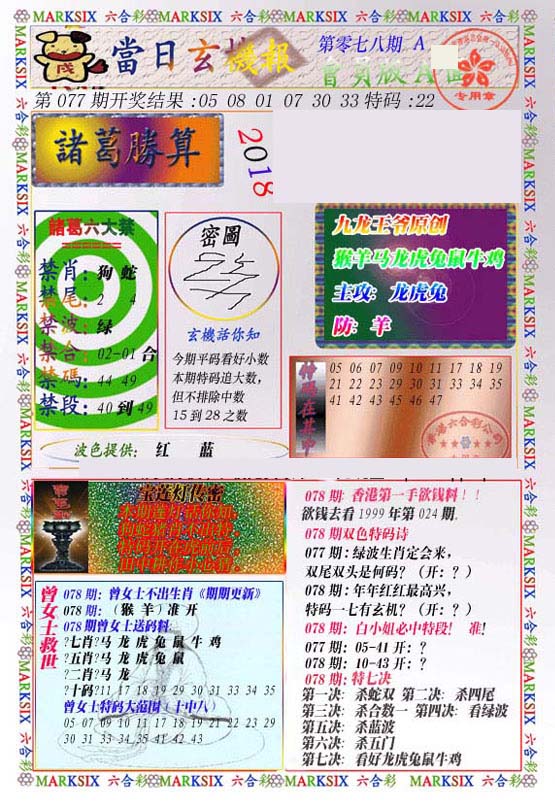 MARKSIX 六合彩 MARKSIX 六合彩 MARKSIX 六合彩 MARKSIX 六合彩
當日玄機報
第零七八期 A
會員版A
专用章
第077期开奖结果:05 08 01 07 30 33特码:22
諸葛勝算
2018
諸葛六大禁
禁肖:狗 蛇
禁尾:2 4
禁波:绿
禁合:02-01 合
禁碼:44 49
禁段:40 到 49
密圖
玄機話你知
今期平码看好小数
本期特码追大数,
但不排除中数
15 到 28 之数
九龙王爷原创
猴羊马龙虎兔鼠牛鸡
主攻: 龙虎兔
防: 羊
特码在其中
05 06 07 08 09 10 11 17 18 19
21 22 23 29 30 31 33 34 35
41 42 43 45 46 47
波色提供: 红 蓝
宝莲灯传密
078 期: 香港第一手欲钱料！！
欲钱去看 1999 年第 024 期.
078 期双色特码诗
077 期: 绿波生肖定会来,
双尾双头是何码? (开: ? )
078 期: 年年红红最高兴,
特码一七有玄机? (开: ? )
078 期: 白小姐必中特段! 准!
077 期: 05-41 开: ?
078 期: 10-43 开: ?
078 期: 特七决
第一决: 杀蛇双 第二决: 杀四尾
第三决: 杀合数一 第四决: 看绿波
第五决: 杀蓝波
第六决: 杀五门
第七决: 看好龙虎兔鼠牛鸡
曾女士救世
078 期: 曾女士不出生肖《期期更新》
078 期: (猴 羊) 准 开
078 期曾女士送码料:
?七肖?马 龙 虎 兔 鼠 牛 鸡
?五肖?马 龙 虎 兔 鼠
?二肖?马 龙
?十码?11 17 18 19 29 30 31 33 34 35
曾女士特码大范围 (十中八)
05 07 09 10 11 17 18 19 21 22 23 29
30 31 33 34 35 41 42 43
MARKSIX 六合彩 MARKSIX 六合彩 MARKSIX 六合彩 MARKSIX 六合彩